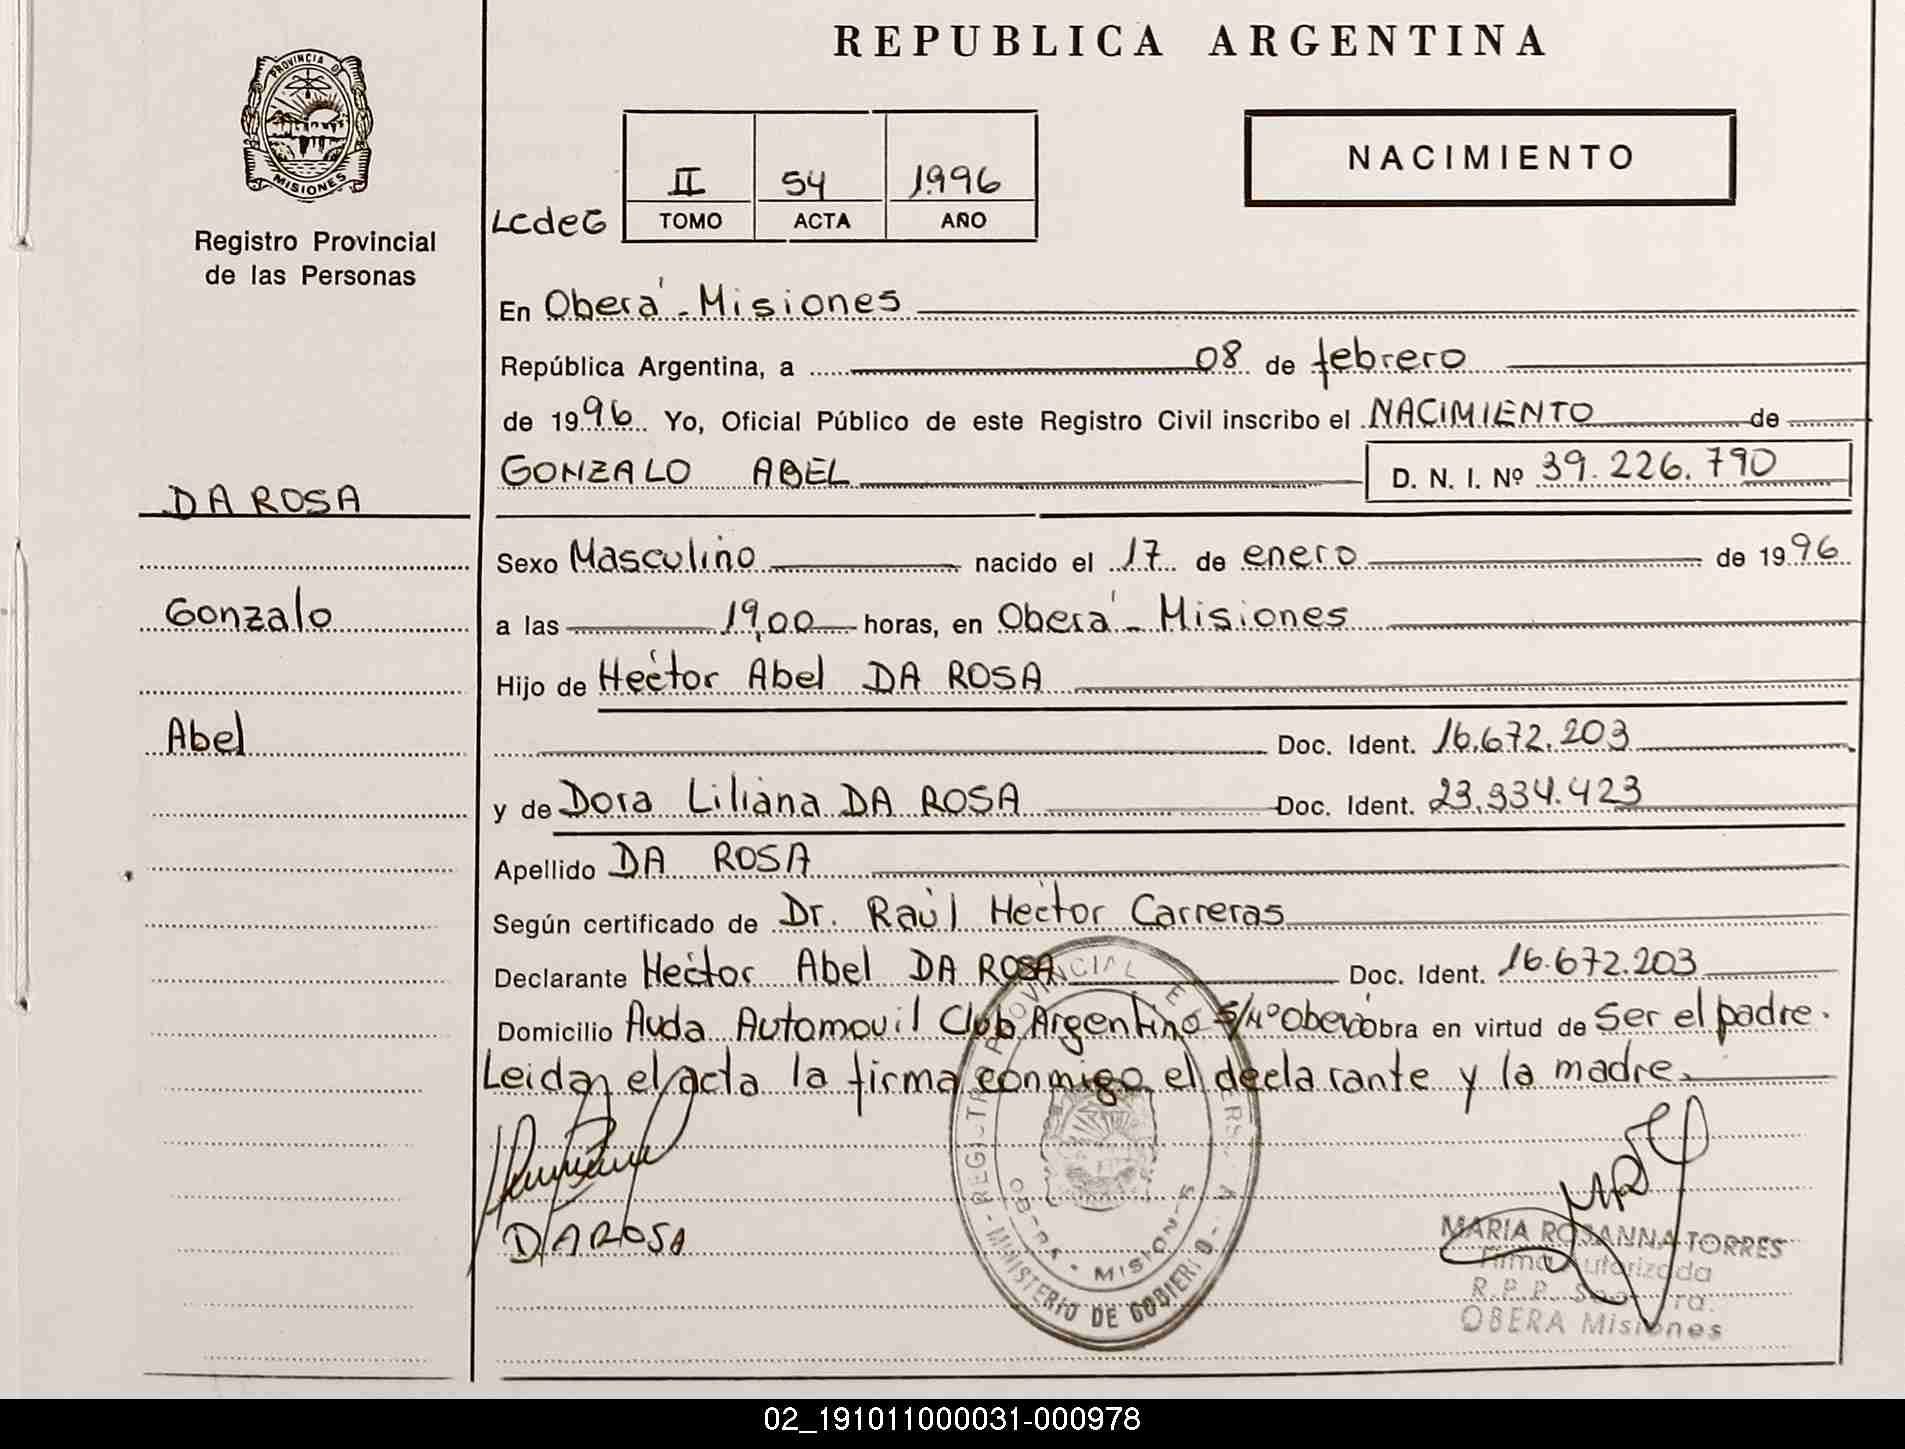 REPUBLICA ARGENTINA
PROVINCIA DE
MISIONES
Registro Provincial
de las Personas
NACIMIENTO
LcdeG
II 54 1996
TOMO ACTA AÑO
En Oberá - Misiones
República Argentina, a 08 de febrero
de 1996 Yo, Oficial Público de este Registro Civil inscribo el NACIMIENTO de
GONZALO ABEL D. N. I. Nº 39.226.790
DA ROSA
Gonzalo
Abel
Sexo Masculino nacido el 17 de enero de 1996
a las 19,00 horas, en Oberá - Misiones
Hijo de Héctor Abel DA ROSA
Doc. Ident. 16.672.203
y de Dora Liliana DA ROSA Doc. Ident. 23.334.423
Apellido DA ROSA
Según certificado de Dr. Raúl Héctor Carreras
Declarante Héctor Abel DA ROSA Doc. Ident. 16.672.203
Domicilio Avda Automovil Club Argentino S/Nº Oberá obra en virtud de Ser el padre.
Leida el acta la firma conmigo el declarante y la madre.
DA ROSA
MINISTERIO DE GOBIERNO
MARIA ROSANNA TORRES
Firma Autorizada
R.P.P.
OBERA Misiones
02_191011000031-000978